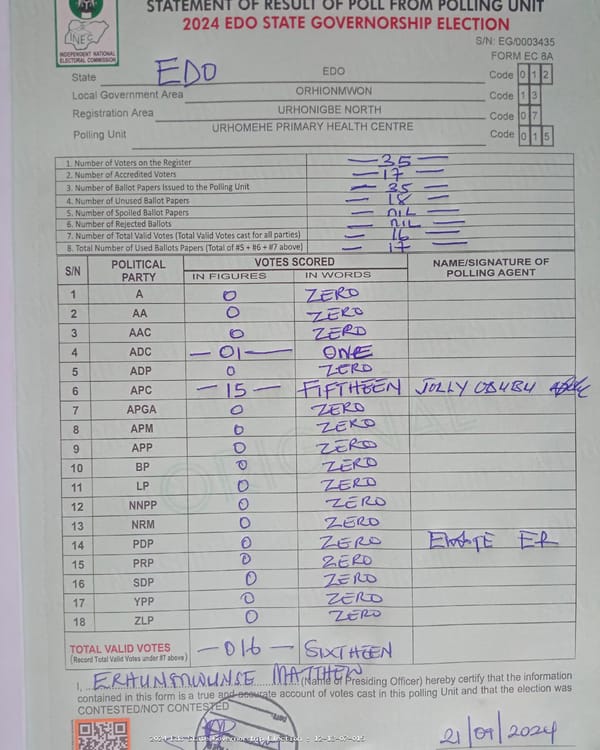 STATEMENT OF RESULT OF POLL FROM POLLING UNIT
2024 EDO STATE GOVERNORSHIP ELECTION
INEC
INDEPENDENT NATIONAL
ELECTORAL COMMISSION
S/N: EG/0003435
FORM EC 8A
State EDO EDO Code 0 1 2
Local Government Area ORHIONMWON Code 1 3
Registration Area URHONIGBE NORTH Code 0 7
Polling Unit URHOMEHE PRIMARY HEALTH CENTRE Code 0 1 5
1. Number of Voters on the Register — 35 —
2. Number of Accredited Voters — 17 —
3. Number of Ballot Papers Issued to the Polling Unit — 35 —
4. Number of Unused Ballot Papers — 18 —
5. Number of Spoiled Ballot Papers — NIL —
6. Number of Rejected Ballots — NIL —
7. Number of Total Valid Votes (Total Valid Votes cast for all parties) — 16 —
8. Total Number of Used Ballots Papers (Total of #5 + #6 + #7 above) — 17 —
S/N POLITICAL PARTY VOTES SCORED NAME/SIGNATURE OF POLLING AGENT
IN FIGURES IN WORDS
1 A 0 ZERO
2 AA 0 ZERO
3 AAC 0 ZERO
4 ADC — 01 — ONE
5 ADP 0 ZERO
6 APC — 15 — FIFTHEEN JOLLY
7 APGA 0 ZERO
8 APM 0 ZERO
9 APP 0 ZERO
10 BP 0 ZERO
11 LP 0 ZERO
12 NNPP 0 ZERO
13 NRM 0 ZERO
14 PDP 0 ZERO ER
15 PRP 0 ZERO
16 SDP 0 ZERO
17 YPP 0 ZERO
18 ZLP 0 ZERO
TOTAL VALID VOTES — 016 — SIXTHEEN
(Record Total Valid Votes under #7 above)
I, MATTHEW (Name of Presiding Officer) hereby certify that the information
contained in this form is a true and accurate account of votes cast in this polling Unit and that the election was
CONTESTED/NOT CONTESTED
21/09/2024
ORIGINAL